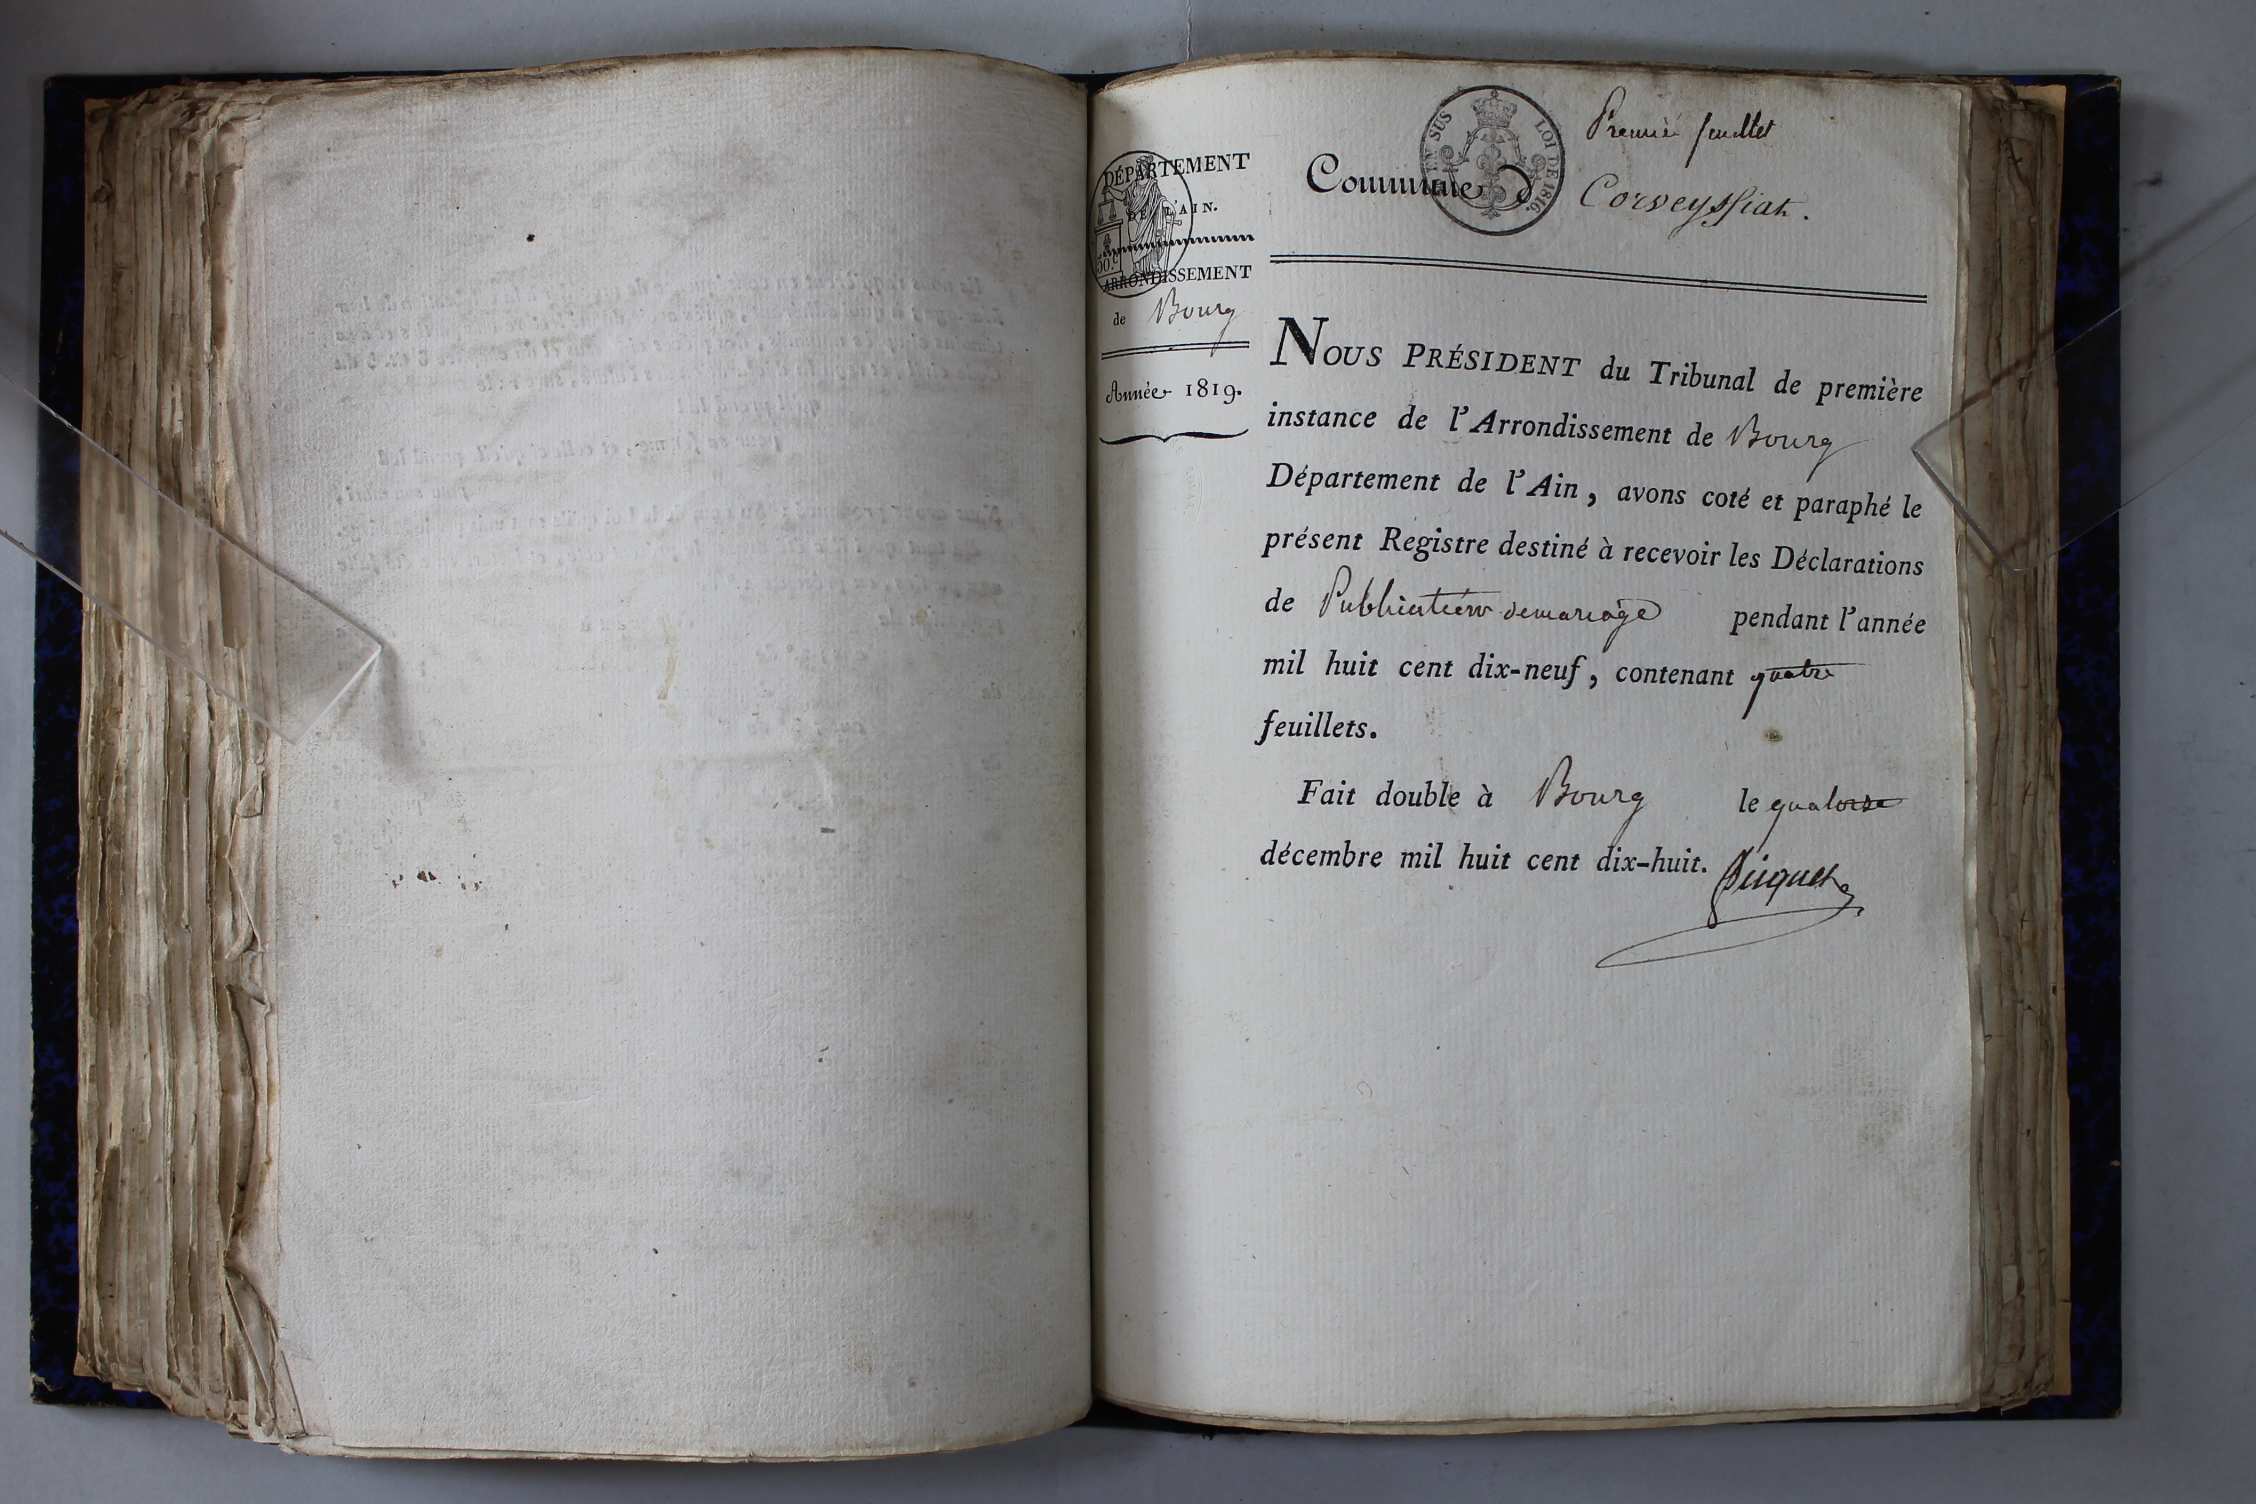 Premier feuillet
EN SUS LOI DE 1816.
Commune d Corveyssiat.
DÉPARTEMENT
DE L'AIN.
50.c
ARRONDISSEMENT
de Bourg
Année 1819.
NOUS PRÉSIDENT du Tribunal de première
instance de l'Arrondissement de Bourg
Département de l'Ain, avons coté et paraphé le
présent Registre destiné à recevoir les Déclarations
de Publication de mariage pendant l'année
mil huit cent dix-neuf, contenant quatre
feuillets.
Fait double à Bourg le quatorse
décembre mil huit cent dix-huit.